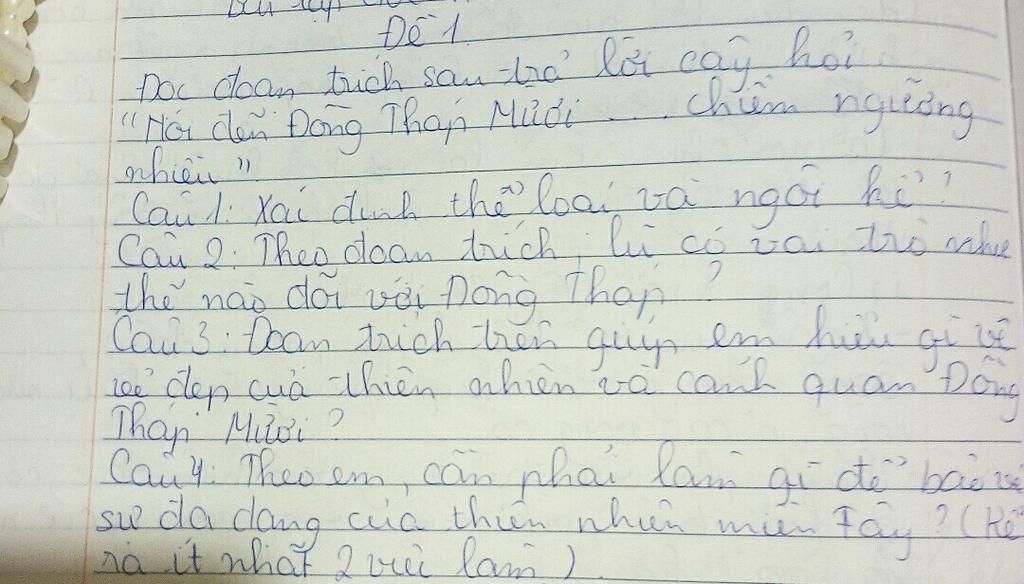 Đề 1.
Đọc đoạn trích sau trả lời câu hỏi.
"Nói đến Đồng Tháp Mười ... chiêm ngưỡng
nhiêu"
Câu 1: Xái định thể loại và ngôi kể?
Câu 2: Theo đoạn trích, lũ có vai trò như
thế nào đối với Đồng Tháp?
Câu 3: Đoạn trích trên giúp em hiểu gì về
vẻ đẹp của thiên nhiên và cảnh quan Đồng
Tháp Mười?
Câu 4: Theo em, cần phải làm gì để bảo vệ
sự đa dạng của thiên nhiên miền Tây? (Kể
ra ít nhất 2 việc làm).